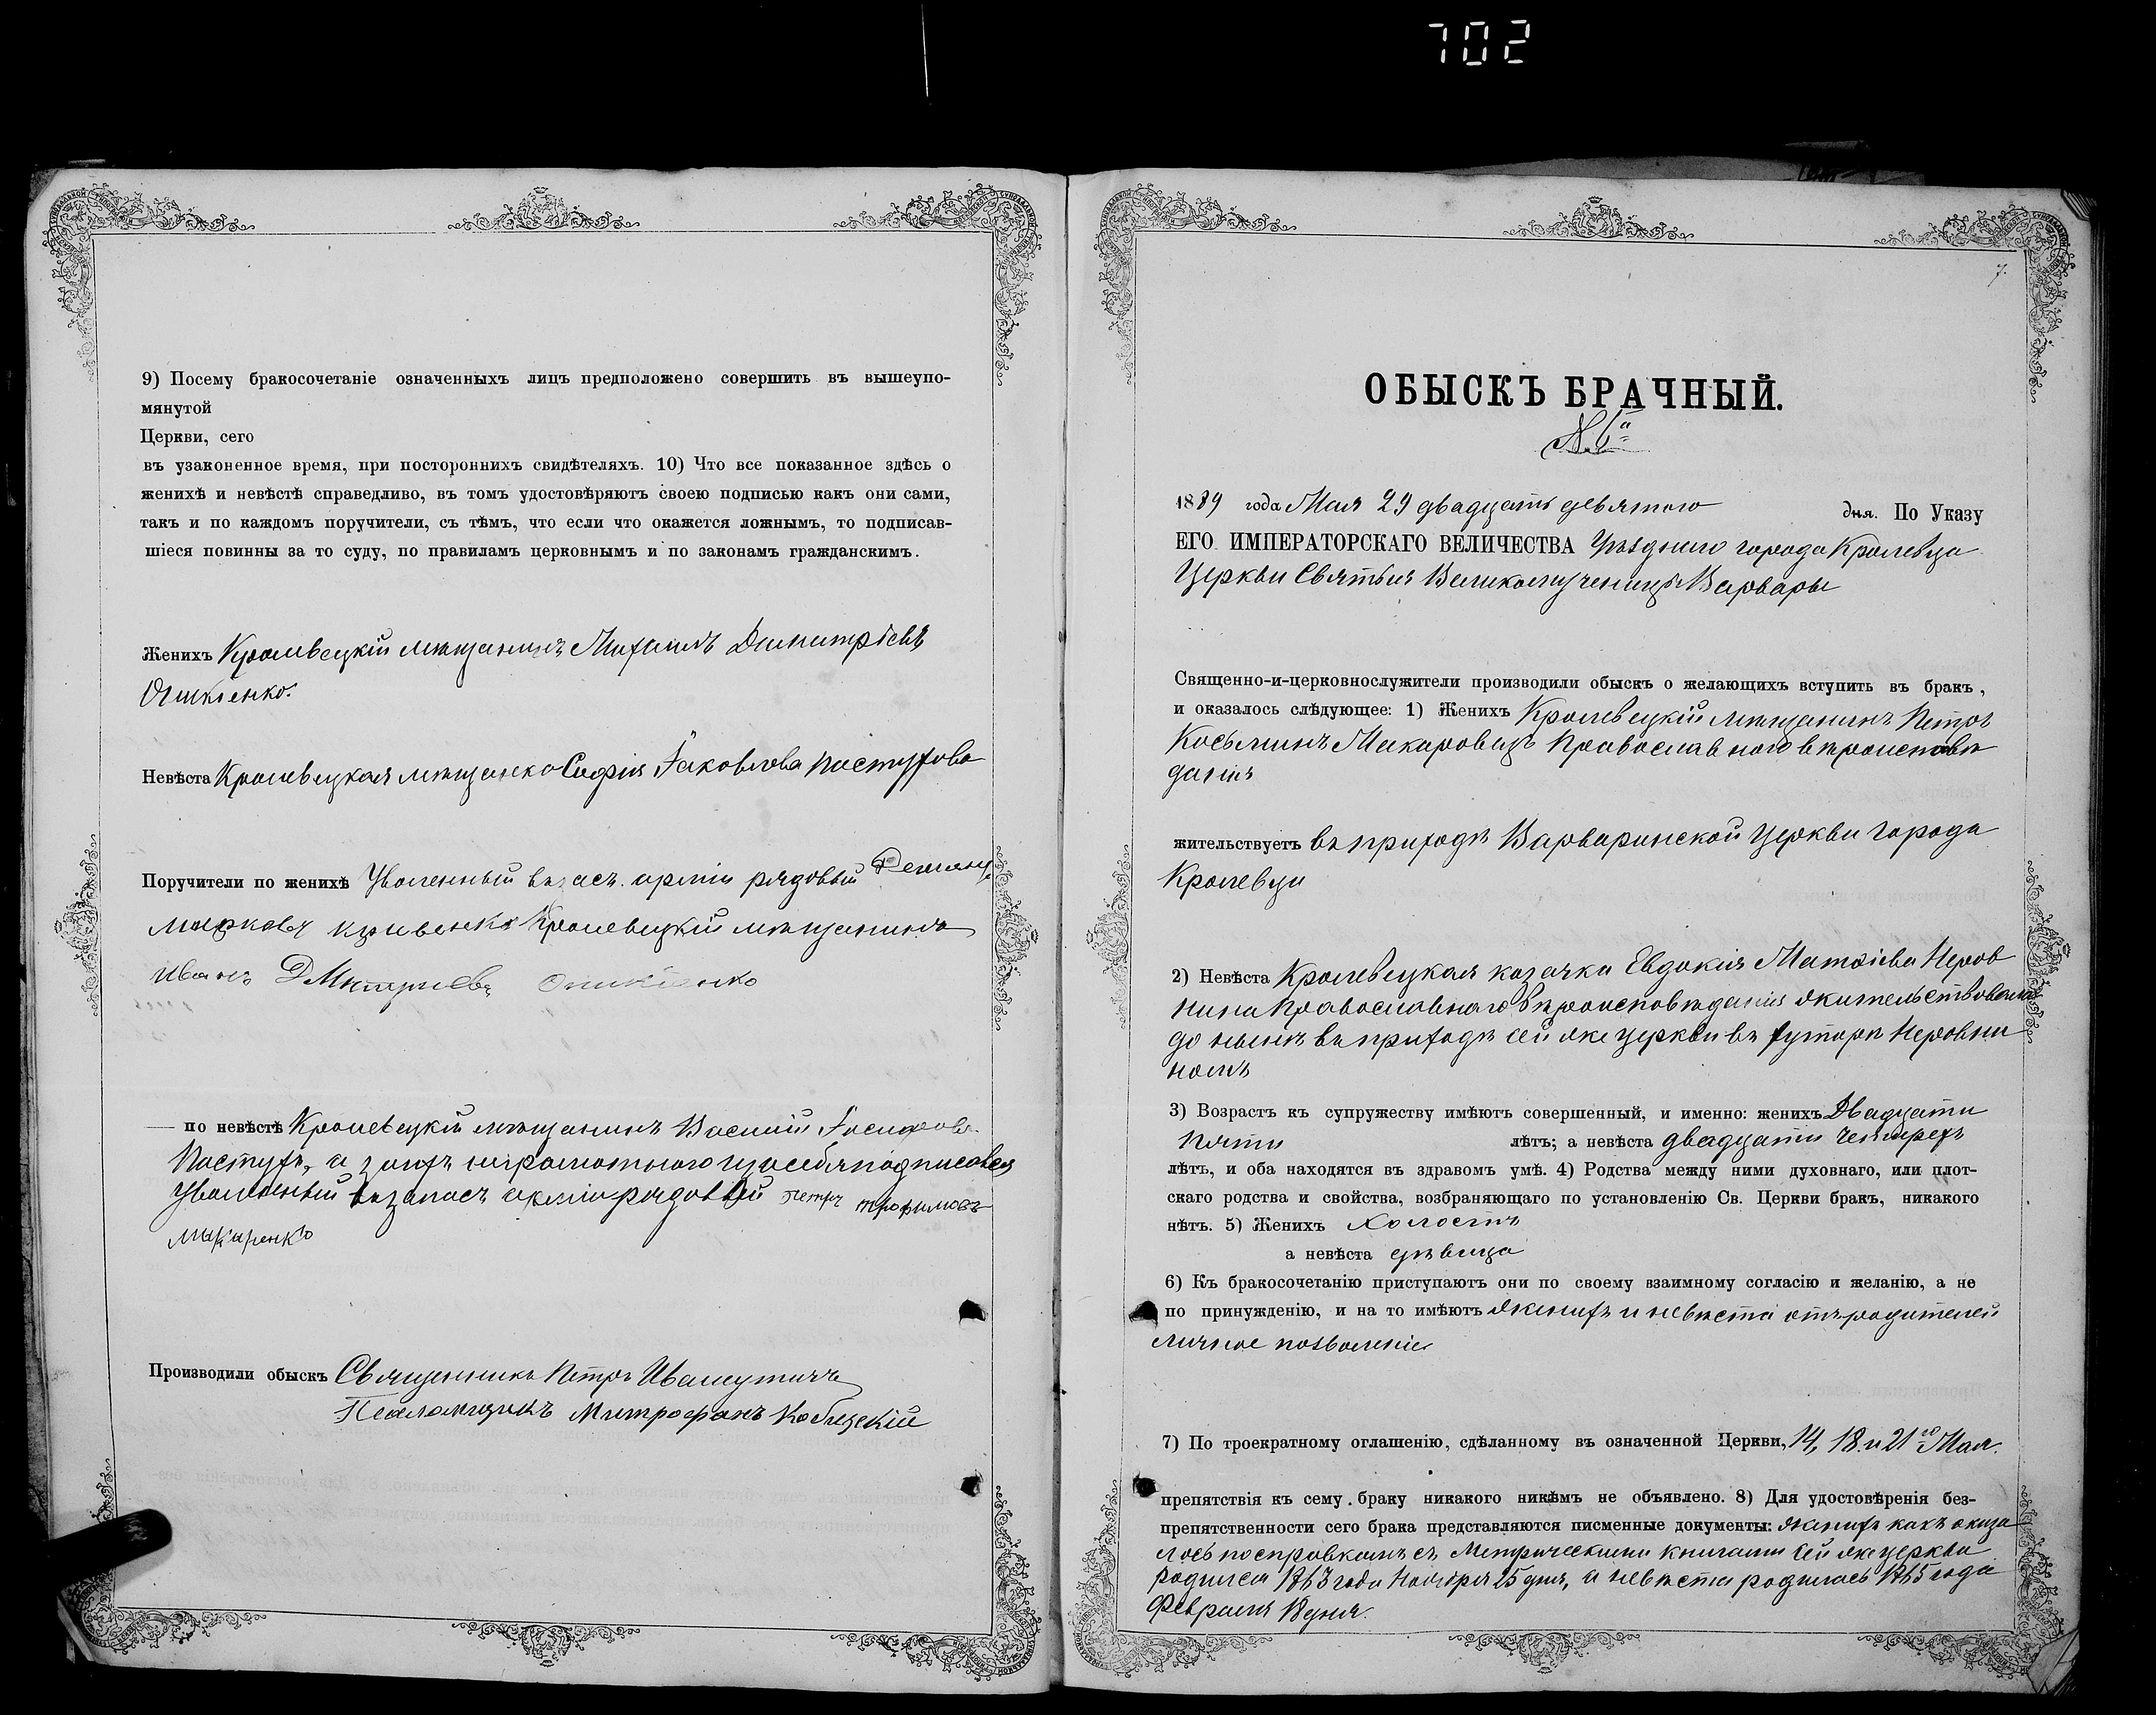 702
9) Посему бракосочетаніе означенныхъ лицъ предположено совершить въ вышеупо-
мянутой
Церкви, сего
въ узаконенное время, при постороннихъ свидѣтеляхъ. 10) Что все показанное здѣсь о
женихѣ и невѣстѣ справедливо, въ томъ удостовѣряютъ своею подписью какъ они сами,
такъ и по каждомъ поручители, съ тѣмъ, что если что окажется ложнымъ, то подписав-
шіеся повинны за то суду, по правиламъ церковнымъ и по законамъ гражданскимъ.
Женихъ Кролевецкій мѣщанинъ Михаилъ Димитріевъ
Невѣста Кролевецкая мѣщанка Софія Іаковлева Пастухова
Поручители по женихѣ Уволенный въ зас. арміи рядовый
Марковъ Кривенко Кролевецкій мѣщанинъ
Иванъ Дмитриевъ
по невѣстѣ Кролевецкій мѣщанинъ Василій
Пастухъ, а за неграмотного за себя подписался
Уволенный въ запасъ арміи рядовый Петръ Трофимовъ
Макаренко
Производили обыскъ Священникъ Петръ
Псаломщикъ Митрофанъ
7.
ОБЫСКЪ БРАЧНЫЙ.
1889 года Мая 29 двадцать девятого дня. По Указу
ЕГО ИМПЕРАТОРСКАГО ВЕЛИЧЕСТВА Уѣзднаго города Кролевца
Церкви Святыя Великомученицы Варвары
Священно-и-церковнослужители производили обыскъ о желающихъ вступить въ бракъ,
и оказалось слѣдующее: 1) Женихъ Кролевецкій мѣщанинъ Петръ
Косьминъ Макаровецъ Православного вѣроисповѣ
данія
жительствуетъ въ приходѣ Варваринской церкви города
Кролевца
2) Невѣста Кролевецкая козачка Евдокія Матѳіева Неров
нина Православнаго вѣроисповѣданія жительствовала
до нынѣ въ приходѣ сей же церкви въ хуторѣ Неровни
номъ
3) Возрастъ къ супружеству имѣютъ совершенный, и именно: женихъ Двадцати
пяти лѣтъ; а невѣста двадцати четырехъ
лѣтъ, и оба находятся въ здравомъ умѣ. 4) Родства между ними духовнаго, или плот-
скаго родства и свойства, возбраняющаго по установленію Св. Церкви бракъ, никакого
нѣтъ. 5) Женихъ холостъ
а невѣста дѣвица
6) Къ бракосочетанію приступаютъ они по своему взаимному согласію и желанію, а не
по принужденію, и на то имѣютъ женихъ и невѣста отъ родителей
личное позволеніе
7) По троекратному оглашенію, сдѣланному въ означенной Церкви, 14, 18 и 21го Мая.
препятствія къ сему браку никакого никѣмъ не объявлено. 8) Для удостовѣренія без-
препятственности сего брака представляются писменные документы: женихъ какъ оказа
лось по справкамъ съ Метрическими книгами сей же церкви
родился 1863 года Ноября 25 дня, а невѣста родилась 1865 года
Февраля 18 дня.